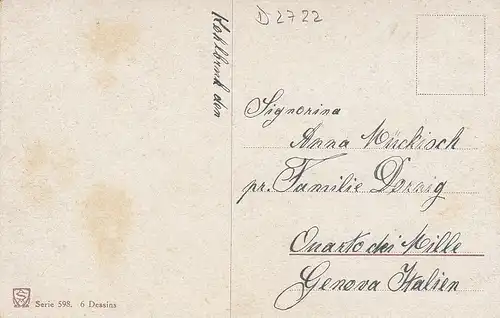 D2722
Kohlbrnk den
Signorina
Anna Mückisch
pr. Familie Dornig
Quarto dei Mille
Genova Italien
Serie 598. 6 Dessins